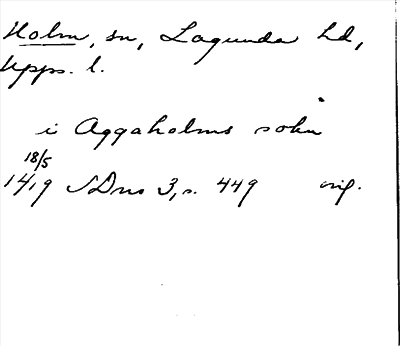 Holm, sn, Lagunda hd,
Upps. l.
i Aggaholms sokn
18/5
1419 SDns 3, s. 449 orig.